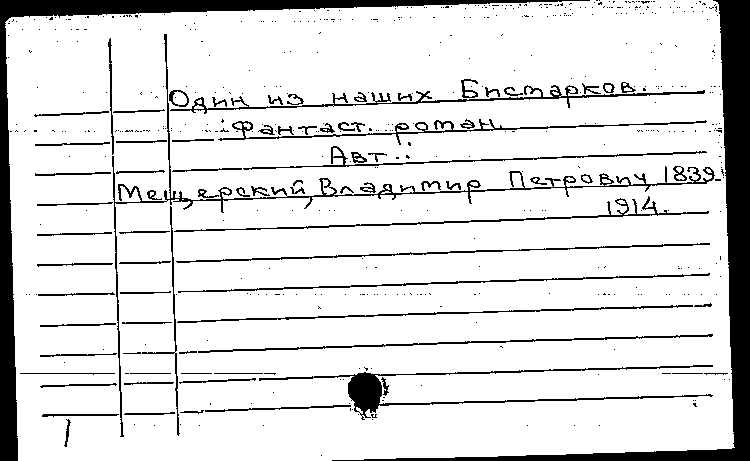 Один из наших Бисмарков.
Фантаст. роман.
Авт.:
Мещерский, Владимир Петрович, 1839-
1914.